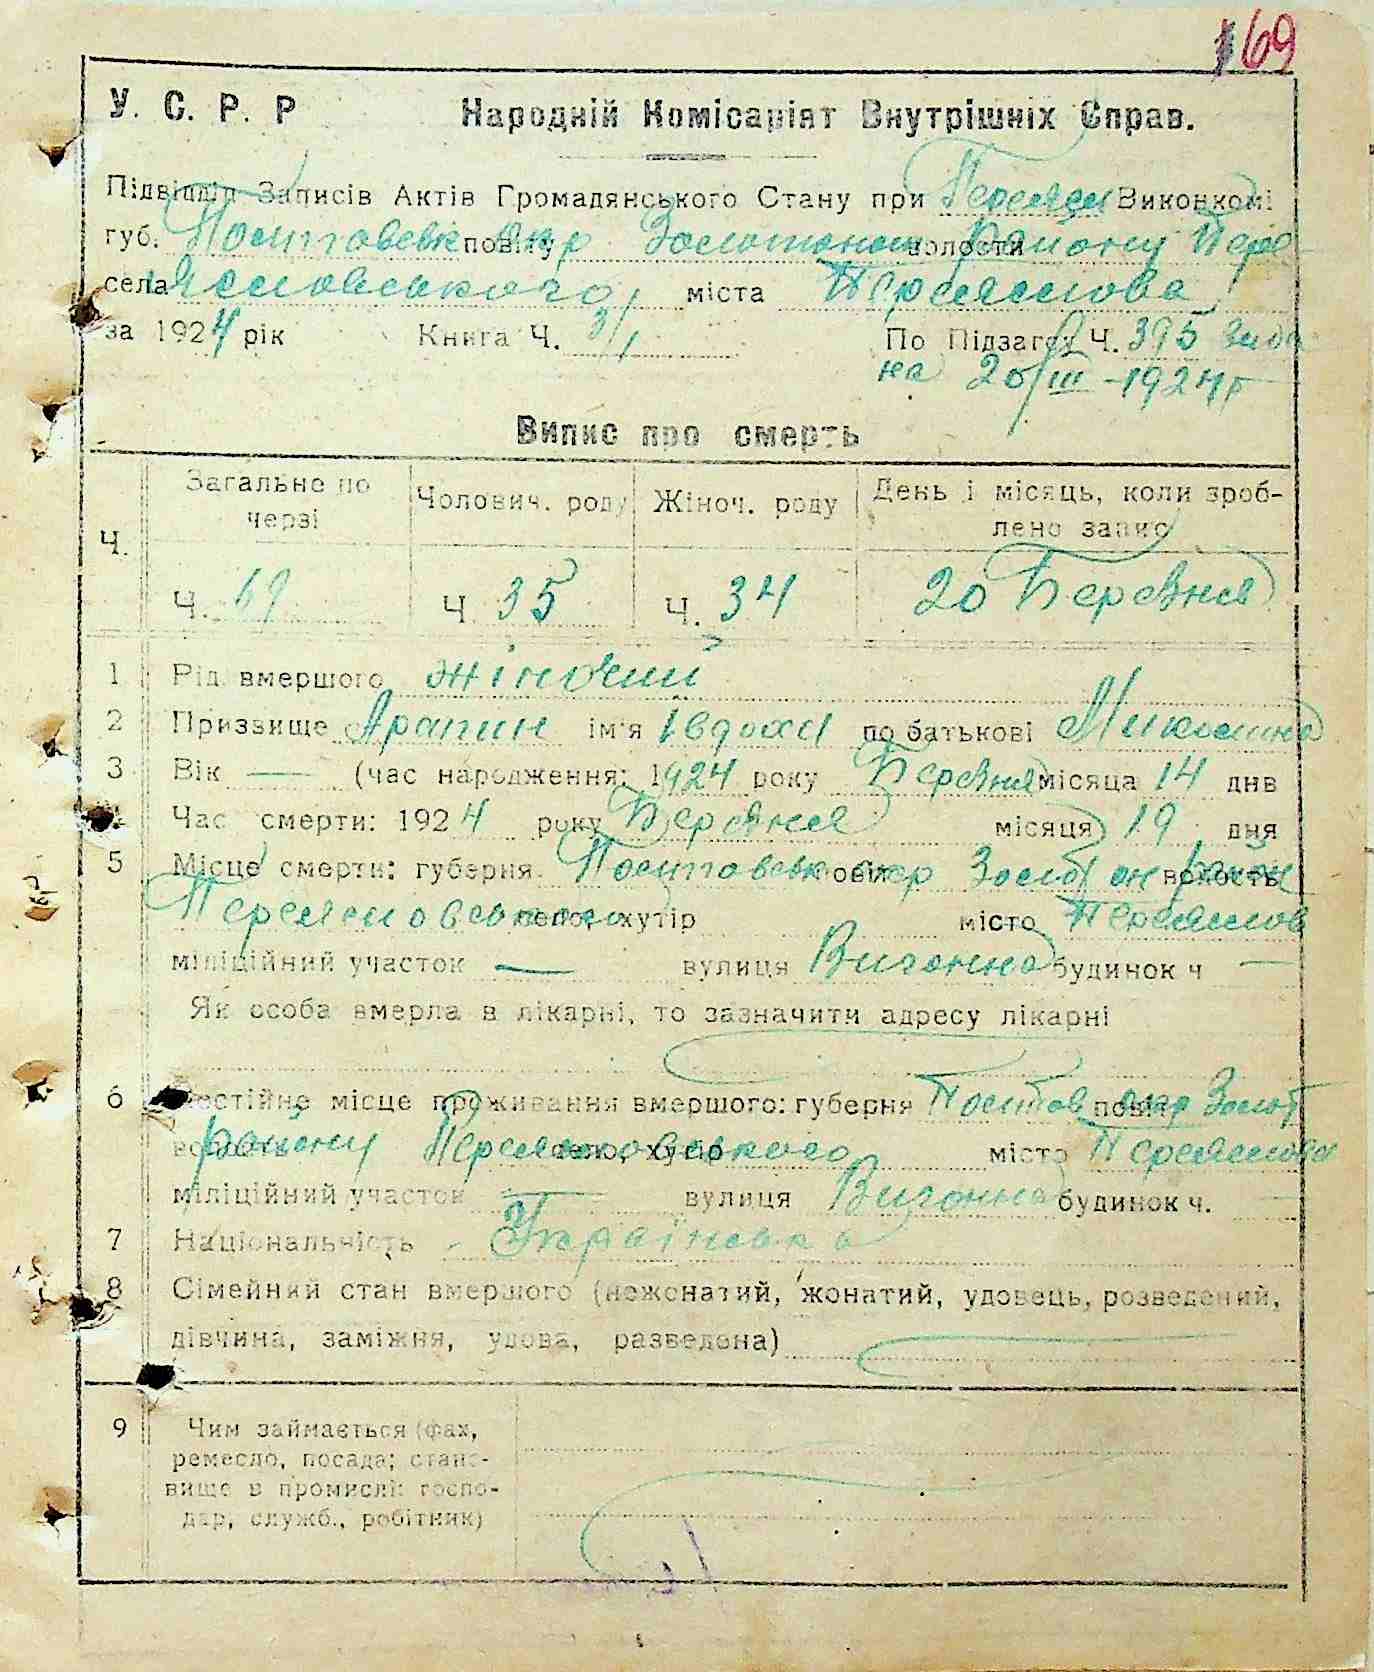 169
У. С. Р. Р Народній Комісаріят Внутрішніх Справ.
Підвідділ Записів Актів Громадянського Стану при Переясл Виконкомі
губ. Полтавськ повіту окр Золотонош волости Району Пере
села яславського міста Переяслова
за 1924 рік Книга Ч. 3/1 По Підзагсу Ч. 395 Вида
на 20/III -1924 р
Випис про смерть
Ч. Загальне по черзі Чолович. роду Жіноч. роду День і місяць, коли зроблено запис
Ч. 69 Ч 35 Ч. 34 20 Березня
1 Рід вмершого жіночий
2 Призвище Арапин ім'я Івдохи по батькові Миколина
3 Вік — (час народження: 1924 року Березня місяца 14 днв
4 Час смерти: 1924 року Березня місяця 19 дня
5 Місце смерти: губерня Полтавськ повіт окр Золотон волость район
Переясловського село, хутір місто Переяслов
міліційний участок — вулиця Вигонна будинок ч —
Як особа вмерла в лікарні, то зазначити адресу лікарні
6 Постійне місце проживання вмершого: губерня Полтав повіт окр Золот
волость району Переясловського село, хутір місто Переяслова
міліційний участок — вулиця Вигонна будинок ч. —
7 Національність Українська
8 Сімейний стан вмершого (нежонатий, жонатий, удовець, розведений,
дівчина, заміжня, удова, разведена)
9 Чим займається (фах,
ремесло, посада; стано-
вище в промислі: госпо-
дар, служб., робітник)